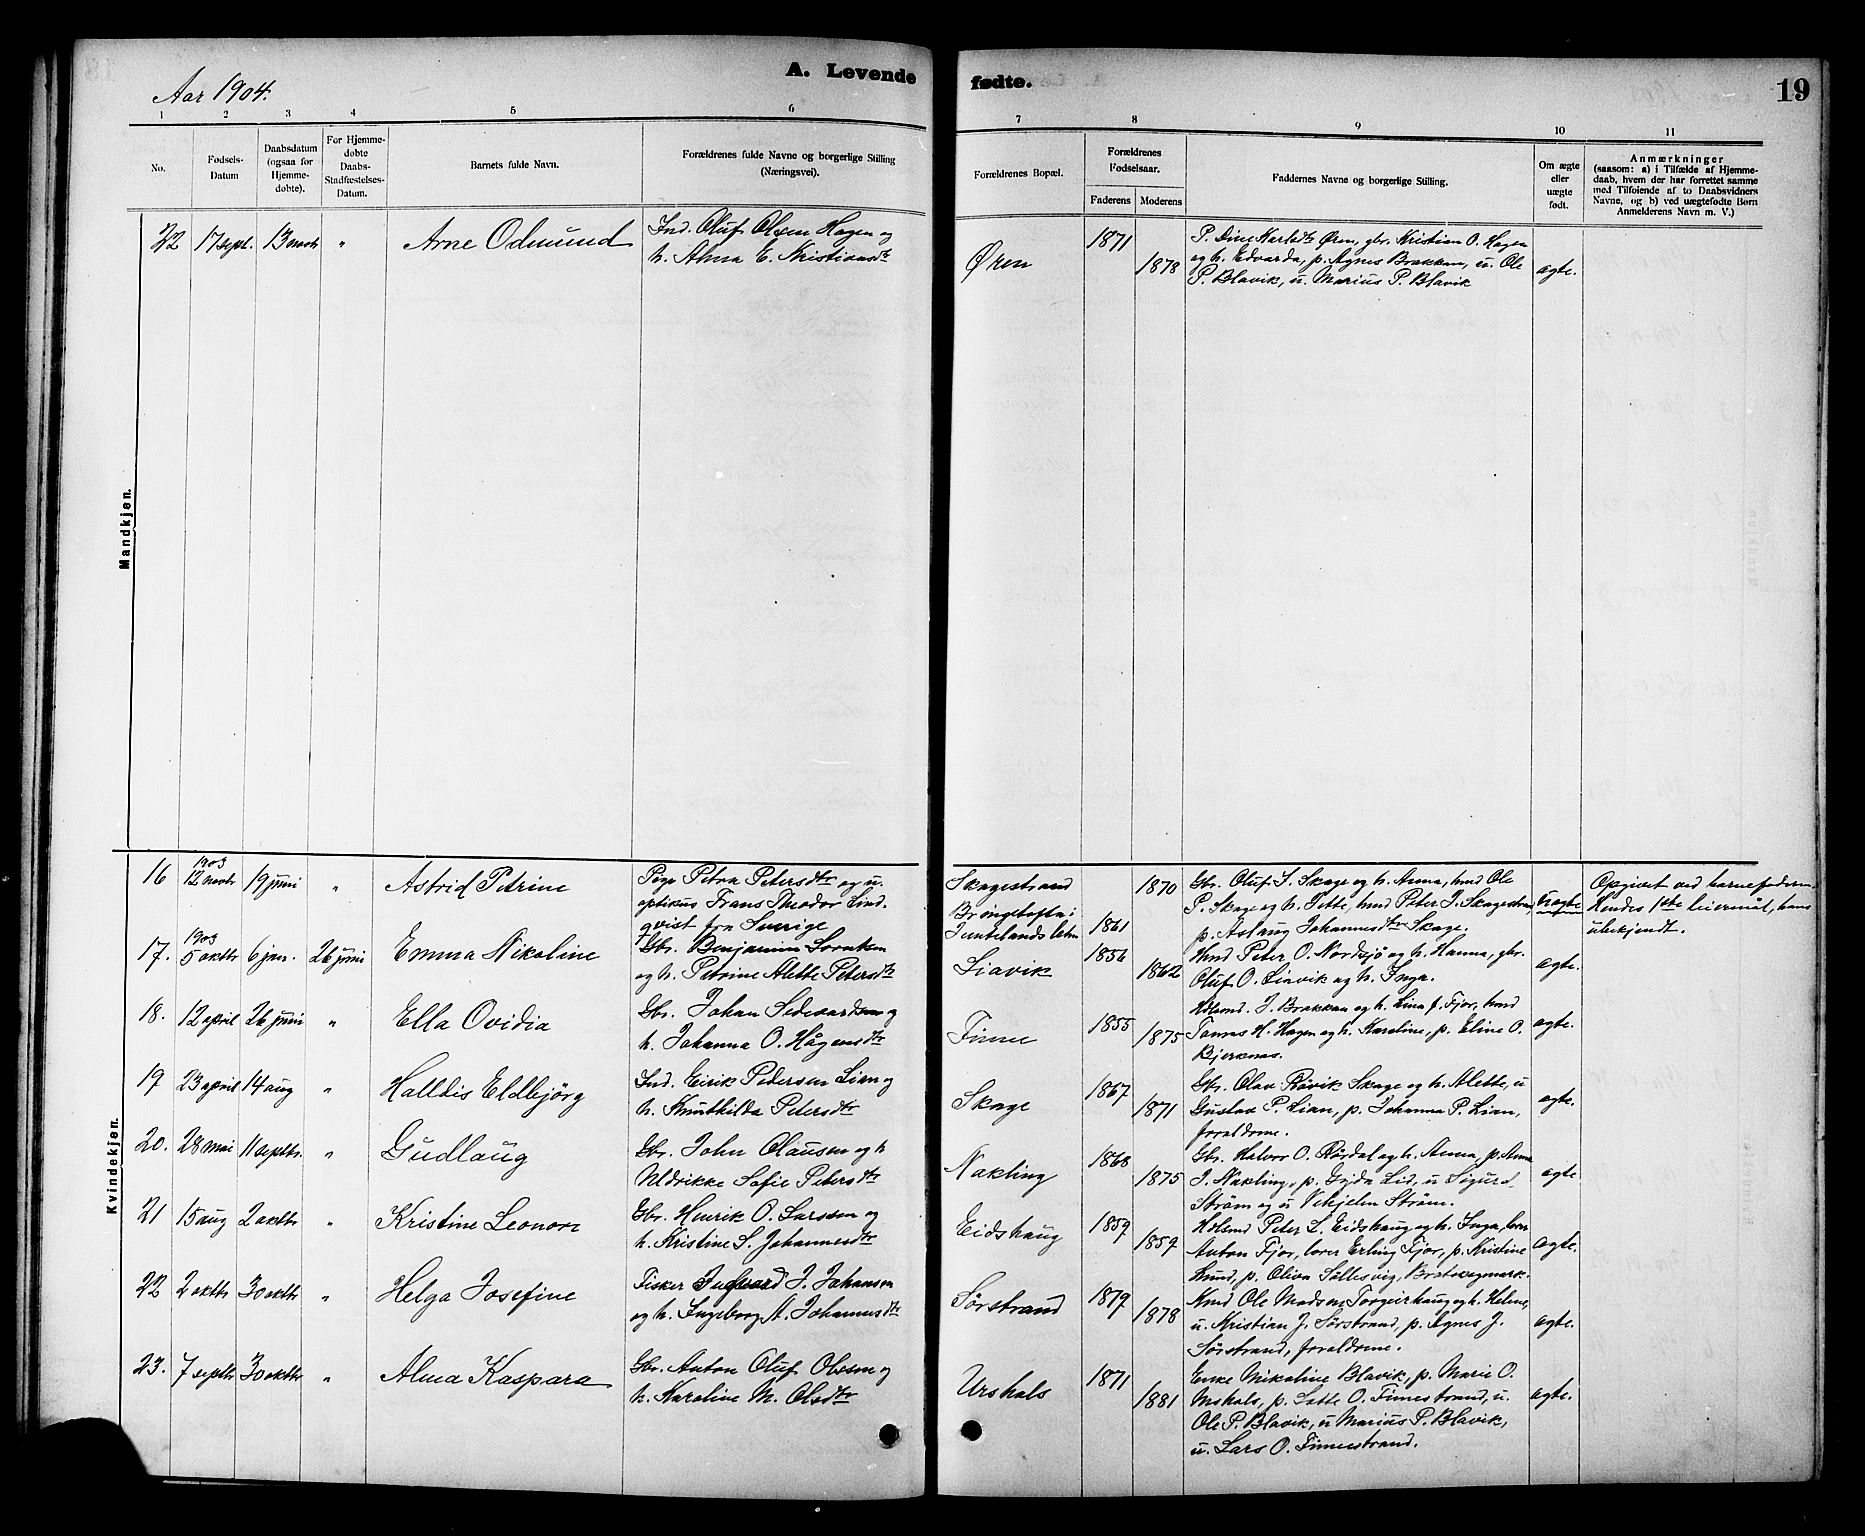 A. Levende
fødte.
19
Aar 1904.
1 2 3 4 5 6 7 8 9 10 11
No.
Fødsels-
Datum
Daabsdatum
(ogsaa for
Hjemme-
døbte).
For Hjemme-
døbte
Daabs-
Stadfæstelses-
Datum.
Barnets fulde Navn.
Forældrenes fulde Navne og borgerlige Stilling
(Næringsvei).
Forældrenes Bopæl.
Forældrenes
Fødselsaar.
Faderens
Moderens
Faddernes Navne og borgerlige Stilling.
Om ægte
eller
uægte
født.
Anmærkninger
(saasom: a) i Tilfælde af Hjemme-
daab, hvem der har forrettet samme
med Tilføiende af to Daabsvidners
Navne, og b) ved uægtefødte Børn
Anmelderens Navn m. V.)
Mandkjøn.
22 17 sept. 13 novb " Arne Odmund
Ind. Oluf Olsen Hagen og
h. Alma E. Kristiansdtr
Øren 1871 1878
P. Dine Karlsdtr Øren, gbr. Kristian O. Hagen
og h. Edvarda, p. Agnes Brakkan, u. Ole
P. Blavik, u. Marius P. Blavik
ægte.
Kvindekjøn.
16 1903 12 novb 19 juni " Astrid Petrine
Pige Petra Petersdtr og u.
optikus Frans Theodor Lind-
qvist fra Sverige
Skagestrand
1861 1870
Gbr. Oluf I. Skage og h. Anna, hmd Ole
P. Skage og h. Jette, hmd Peter I. Skagestrand,
p. Aslaug Johannesdtr Skage.
uægte
Opgivet ved barnefaderen
Hendes 1ste leiermål, hans
ubekjendt.
17. 1903 5 oktb 6 jan. 26 juni Emma Nikoline
Gbr. Benjamin Lorntsen
og h. Petrine Alette Petersdtr
Liavik 1856 1862
Hmd Peter O. Nordsjö og h. Hanna, gbr.
Oluf O. Liavik og h. Inga.
ægte.
18. 12 april 26 juni " Ella Ovidia
Gbr. Johan Sedevardsen og
h. Johanna O. Hågensdtr
Finne 1855 1875
J. Brakkan og h. Lina J. Fjor, hmd
H. Hagen og h. Karoline, p. Eline O.
Bjerknes.
ægte.
19 23 april 14 aug " Halldis Eldbjörg
Ind. Eirik Pedersen Lian og
h. Knuthilda Petersdtr
Skage 1867 1871
Gbr. Olav Rövik Skage og h. Alette, u
Gustav P. Lian, p. Johanna P. Lian,
foraldrene.
ægte.
20. 28 mai 11 septbr. " Gudlaug
Gbr. John Olausen og h
Uldrikke Sofie Petersdtr
Nakling 1868 1875
Gbr. Halvor O. Rördal og h. Anna, p. Anna
I. Nakling, p. Gyda Lid, u Sigurd
Strøm og u Vilhjelm Strøm.
ægte
21 15 aug 2 oktb " Kristine Leonore
Gbr. Henrik O. Larssen og
h. Kristine S. Johannesdtr
Eidshaug 1859 1859
Holsmd Peter L. Eidshaug og h. Inga, lærer
Anton Fjor, lærer Erling Fjor, p. Kristine
Lund, p. Oliva Sällesvig, Brataagmark.
ægte.
22 2 oktb 30 oktb " Helga Josefine
Fisker J. Johansen
og h. Ingeborg A. Johannesdtr
Sörstrand 1879 1878
Hmd Ole Madsen Torgeirhaug og h. Helene,
u. Kristian J. Sørstrand, p. Agnes J.
Sørstrand, foraldrene.
ægte.
23. 7 septb 30 oktb " Alma Kaspara
Gbr. Anton Oluf Olsen og
h. Karoline M. Olsdtr
Urshals 1871 1881
Enke Nikoline Blavik, p. Marie O.
Urshals, p. Lotte O. Finnestrand, u.
Ole P. Blavik, u Marius P. Blavik,
u. Lars O. Finnestrand.
ægte.